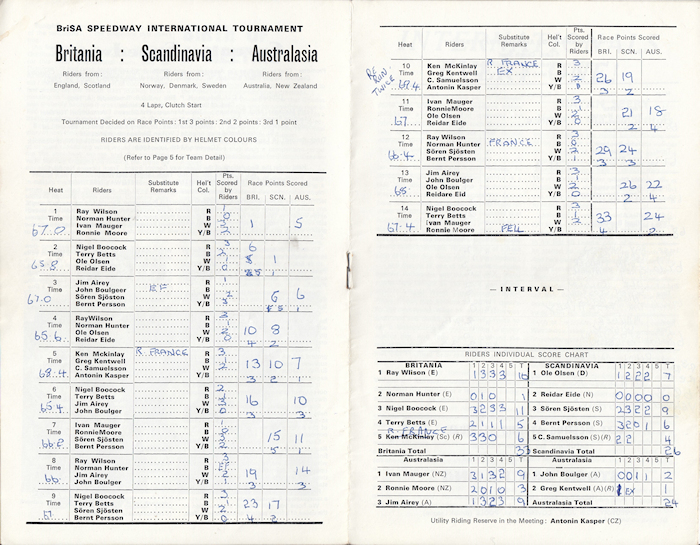 BriSA SPEEDWAY INTERNATIONAL TOURNAMENT
Britania : Scandinavia : Australasia
Riders from: Riders from: Riders from:
England, Scotland Norway, Denmark, Sweden Australia, New Zealand
4 Laps, Clutch Start
Tournament Decided on Race Points: 1st 3 points: 2nd 2 points: 3rd 1 point
RIDERS ARE IDENTIFIED BY HELMET COLOURS
(Refer to Page 5 for Team Detail)
Heat Riders Substitute Remarks Hel't Col. Pts. Scored by Riders Race Points Scored
BRI. SCN. AUS.
1 Ray Wilson R
Time Norman Hunter B 0
Ivan Mauger W 1 5
Ronnie Moore Y/B
2 Nigel Boocock R 3 6
Time Terry Betts B
Ole Olsen W 1
65.8 Reidar Eide Y/B 0
3 Jim Airey R
Time John Boulgeer B
67.0 Sören Sjösten W 2 6 6
Bernt Persson Y/B
4 RayWilson R
Time Norman Hunter B
Ole Olsen W 2 10 8
65.6 Reidar Eide Y/B 0 4 2
5 Ken Mckinlay R. FRANCE R 3
Time Greg Kentwell B
C. Samuelsson W 2 13 10 7
68.4 Antonin Kasper Y/B 3 2 1
6 Nigel Boocock R 2
Time Terry Betts B 1
Jim Airey W 3 16 10
65.4 John Boulger Y/B 0 3 3
7 Ivan Mauger R
Time RonnieMoore B
Sören Sjösten W 15 11
Bernt Persson Y/B 5 1
8 Ray Wilson R 3
Time Norman Hunter B EF
Ivan Mauger W 2 19 14
66. John Boulger Y/B 3
9 Nigel Boocock R 3
Time Terry Betts B 1
Sören Sjösten W 2 23 17
67. Bernt Persson Y/B 0 4 2
Heat Riders Substitute Remarks Hel't Col. Pts. Scored by Riders Race Points Scored
BRI. SCN. AUS.
RE RUN TWICE
10 Ken McKinlay R. FRANCE R 3
Time Greg Kentwell EX B
C. Samuelsson W 2 26 19
Antonin Kasper Y/B 3 2
11 Ivan Mauger R
Time Ronnie Moore B
Ole Olsen W 2 21 18
67 Reidar Eide Y/B 0 2 4
12 Ray Wilson R 3
Time Norman Hunter FRANCE B 0
Sören Sjösten W 2 29 24
66.4 Bernt Persson Y/B 1 3 3
13 Jim Airey R 3
Time John Boulger B 1
Ole Olsen W 2 26 22
68 Reidare Eid Y/B 0 2 4
14 Nigel Boocock R 3
Time Terry Betts B 1
Ivan Mauger W 2 33 24
67.4 Ronnie Moore FELL Y/B 4 2
– INTERVAL –
RIDERS INDIVIDUAL SCORE CHART
BRITANIA 1 2 3 4 5 T SCANDINAVIA 1 2 3 4 5 T
1 Ray Wlison (E) 1 3 3 3 10 1 Ole Olsen (D) 1 2 2 2 7
2 Norman Hunter (E) 0 1 0 1 2 Reidar Eide (N) 0 0 0 0 0
3 Nigel Boocock (E) 3 2 3 3 11 3 Sören Sjösten (S) 2 3 2 2 9
4 Terry Betts (E) 2 1 1 1 5 4 Bernt Persson (S) 3 2 0 1 6
R FRANCE
5 Ken McKinlay (Sc) (R) 3 3 0 6 5 C. Samuelsson (S)(R) 2 2 4
Britania Total 33 Scandinavia Total 26
Australasia 1 2 3 4 5 T Australasia 1 2 3 4 5 T
1 Ivan Mauger (NZ) 3 1 3 2 9 1 John Boulger (A) 0 0 1 1 2
2 Ronnie Moore (NZ) 2 0 1 0 3 2 Greg Kentwell (A) (R) 1 EX 1
3 Jim Airey (A) 1 3 2 3 9 Australasia Total 24
Utility Riding Reserve in the Meeting: Antonin Kasper (CZ)